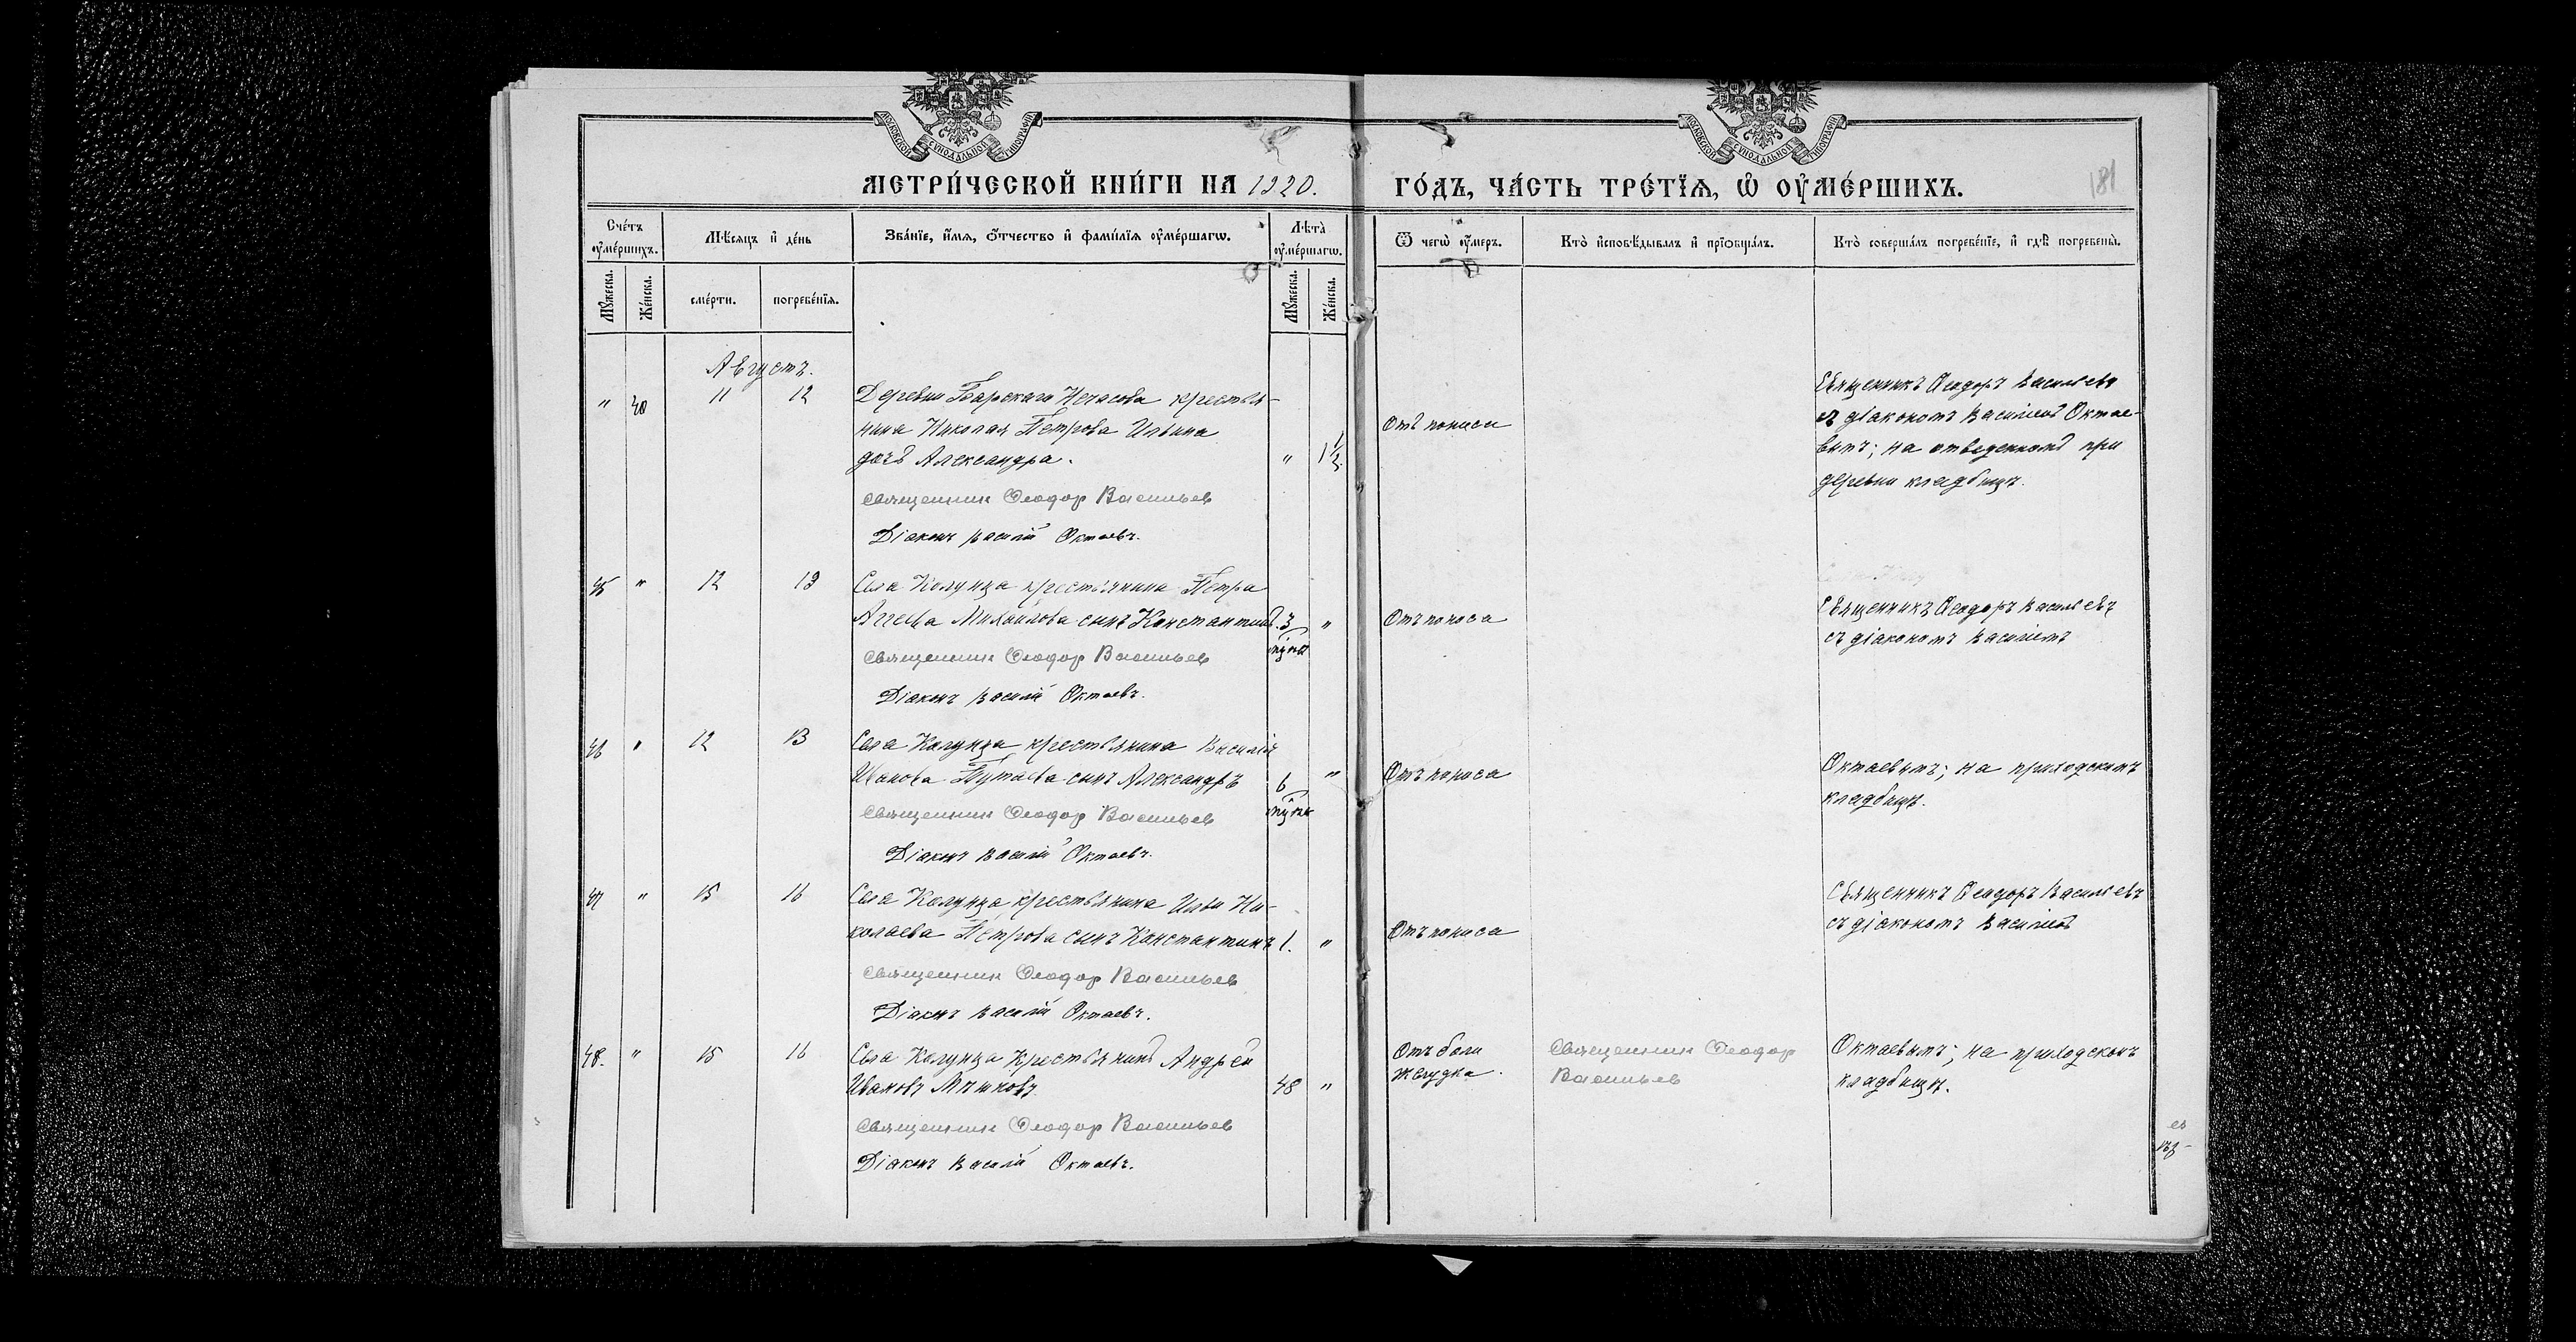 МЕТРИ́ЧЕСКОЙ КНИ́ГИ НА 1920. ГО́ДЪ, ЧА́СТЬ ТРЕ́ТЇѦ, Ѽ ОУ҆МЕ́РШИХЪ.
181
Сче́тъ оу҆ме́ршихъ.
Мѣ́сяцъ и҆ де́нь
Зва́нїе, и҆́мѧ, ѻ҆́тчество и҆ фамі́лїѧ оу҆ме́ршагѡ.
Лѣ́та̀ оу҆ме́ршагѡ.
Ѿ чегѡ̀ оу҆́меръ.
Кто̀ и҆сповѣ́дывалъ и҆ прїѡбща́лъ.
Кто̀ соверша́лъ погребе́нїе, и҆ гдѣ̀ погребены̀.
Мꙋ́жеска.
Же́нска.
сме́рти.
погребе́нїѧ.
Мꙋ́жеска.
Же́нска.
Августъ.
" 40 11 12 Деревни Барскаго Нечасова крестья-
нина Николая Петрова Ильина
дочь Александра. " 1½
Священник Феодор Васильев
Діаконъ Василій Октаевъ.
Отъ поноса
Священникъ Ѳеодоръ Васильевъ
съ діакономъ Василіемъ Октае-
вымъ; на отведенномъ при
деревни кладбищѣ.
45 " 12 13 Села Колунца крестьянина Петра
Аггеева Михайлова сынъ Константинъ. 3 "
Священник Феодор Васильев
Діаконъ Василій Октаевъ.
Отъ поноса
Священникъ Ѳеодоръ Васильевъ
съ діакономъ Василіемъ
46 " 12 13 Села Колунца крестьянина Василія
Иванова Путаева сынъ Александръ 6 "
Священник Феодор Васильев
Діаконъ Василій Октаевъ.
Отъ поноса
Октаевымъ; на приходскомъ
кладбищѣ.
47 " 15 16 Села Колунца крестьянина Ильи Ни-
колаева Петрова сынъ Константинъ 1. "
Священник Феодор Васильев
Діаконъ Василій Октаевъ.
Отъ поноса
Священникъ Ѳеодоръ Васильевъ
съ діакономъ Василіемъ
48. " 15 16 Села Колунца крестьянинъ Андрей
Ивановъ Мѣшковъ 48 "
Священник Феодор Васильев
Діаконъ Василій Октаевъ.
Отъ боли
желудка.
Священник Феодор
Васильев
Октаевымъ; на приходскомъ
кладбищѣ.